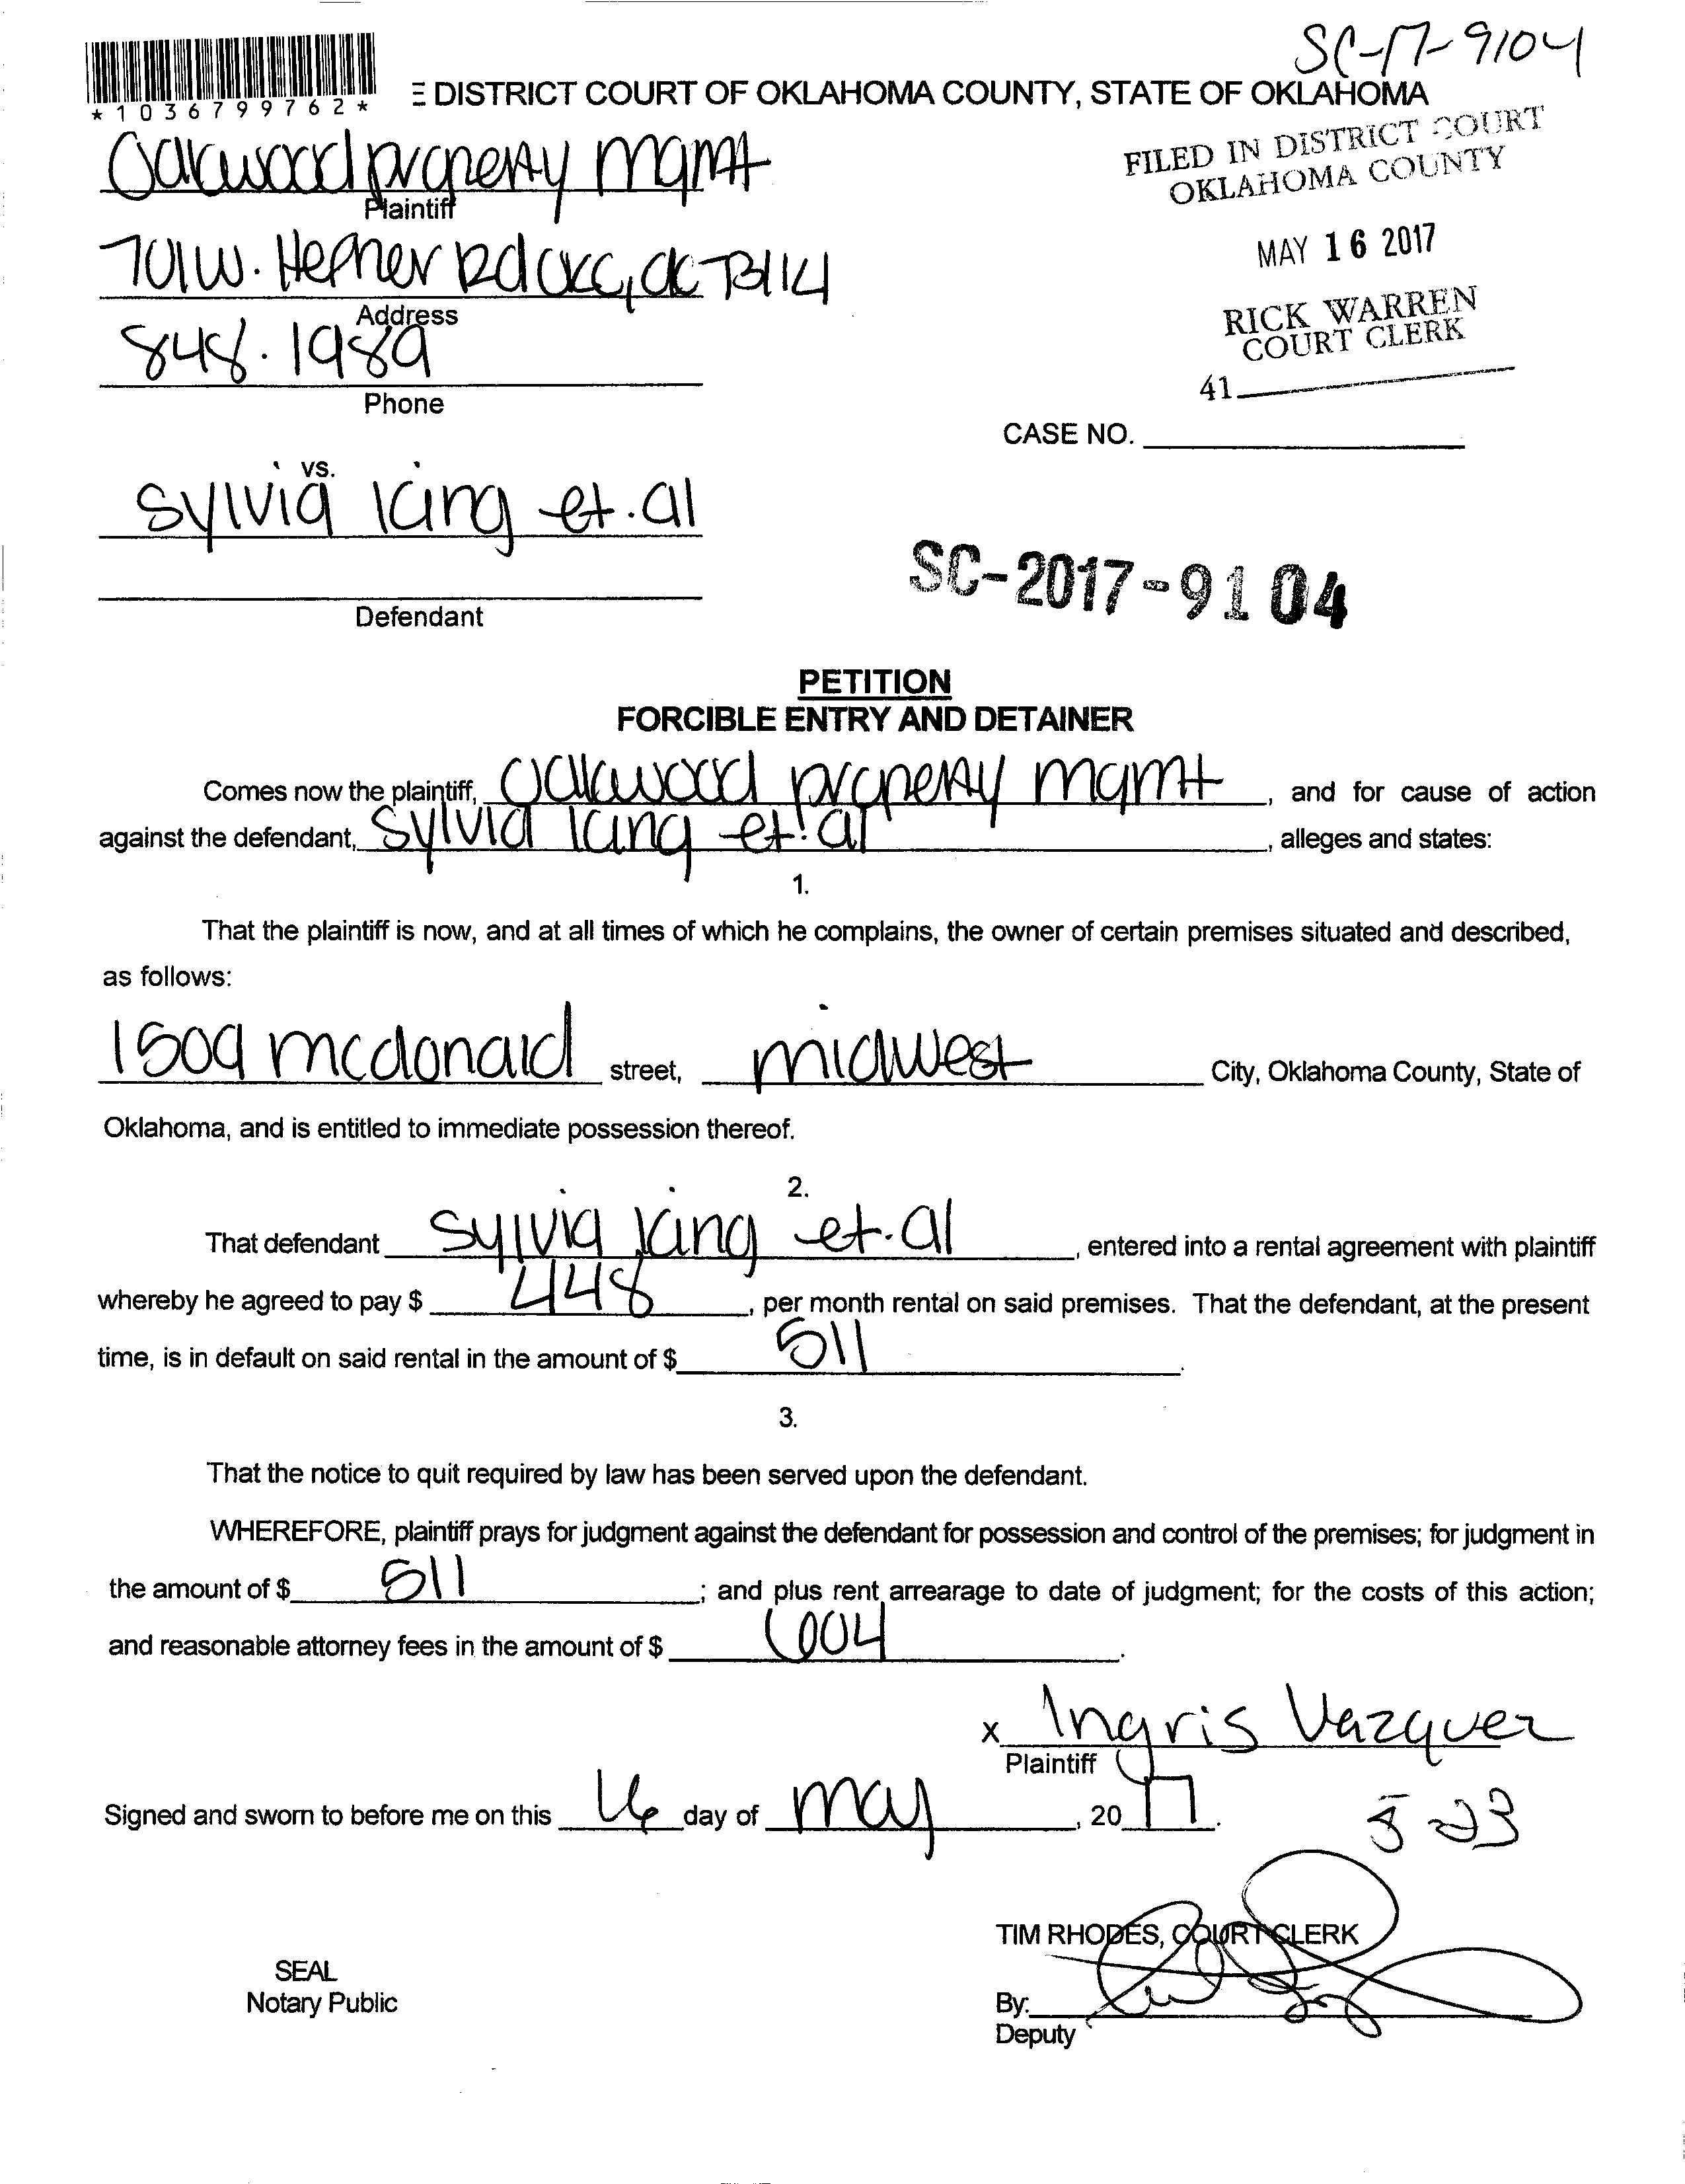 SC-17-9104
*1036799762*
E DISTRICT COURT OF OKLAHOMA COUNTY, STATE OF OKLAHOMA
FILED IN DISTRICT COURT
OKLAHOMA COUNTY
Oakwood property mgmt
Plaintiff
MAY 16 2017
701 W. Hefner Rd OKC, OK 73114
Address
RICK WARREN
COURT CLERK
848.1989
41
Phone
CASE NO.
vs.
Sylvia King et.al
SC-2017-9104
Defendant
PETITION
FORCIBLE ENTRY AND DETAINER
Comes now the plaintiff, Oakwood property mgmt, and for cause of action
against the defendant, Sylvia King et.al, alleges and states:
1.
That the plaintiff is now, and at all times of which he complains, the owner of certain premises situated and described,
as follows:
1509 mcdonald street, midwest City, Oklahoma County, State of
Oklahoma, and is entitled to immediate possession thereof.
2.
That defendant Sylvia King et.al, entered into a rental agreement with plaintiff
whereby he agreed to pay $ 448, per month rental on said premises. That the defendant, at the present
time, is in default on said rental in the amount of $ 511.
3.
That the notice to quit required by law has been served upon the defendant.
WHEREFORE, plaintiff prays for judgment against the defendant for possession and control of the premises; for judgment in
the amount of $ 511; and plus rent arrearage to date of judgment; for the costs of this action;
and reasonable attorney fees in the amount of $ 604.
x Ingris Vazquez
Plaintiff
Signed and sworn to before me on this 16 day of may, 20 17.
5-23
TIM RHODES, COURT CLERK
SEAL
Notary Public
By:
Deputy